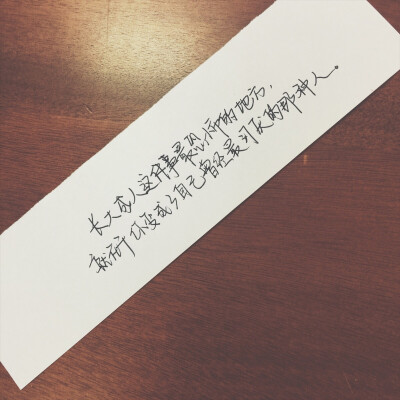 长大成人这件事最恐怖的地方，
就在于你变成了自己曾经最讨厌的那种人。